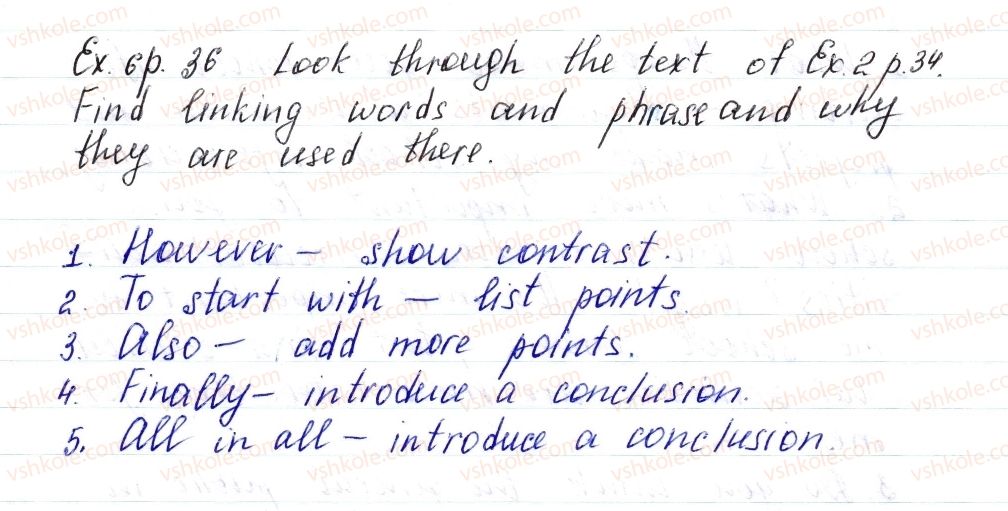 Ex. 6p. 36 Look through the text of Ex. 2 p. 34.
Find linking words and phrase and why
they are used there.
1. However – show contrast.
2. To start with – list points.
3. Also – add more points.
4. Finally – introduce a conclusion.
5. All in all – introduce a conclusion.